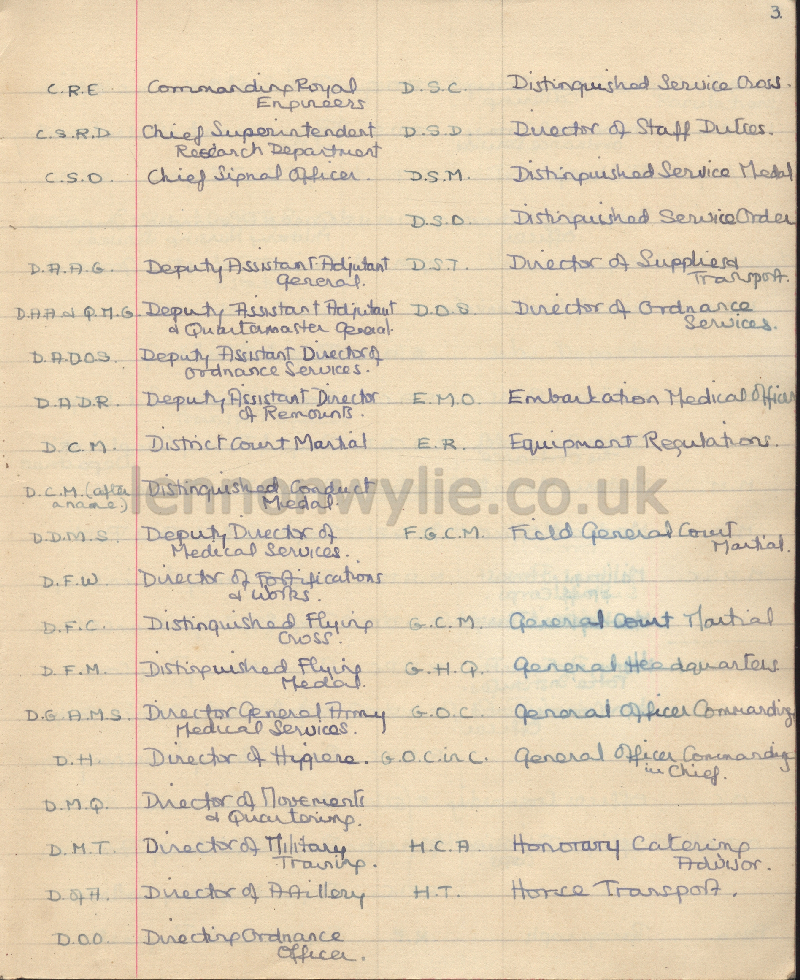 3.
C.R.E Commanding Royal
Engineers
C.S.R.D Chief Superintendent
Research Department
C.S.O Chief Signal Officer.
D.A.A.G. Deputy Assistant Adjutant
General.
D.A.A & Q.M.G. Deputy Assistant Adjutant
& Quartermaster General.
D.A.D.O.S. Deputy Assistant Director of
Ordnance Services.
D.A.D.R. Deputy Assistant Director
of Remounts.
D.C.M. District Court Martial
D.C.M. (after
a name) Distinguished Conduct
Medal.
D.D.M.S. Deputy Director of
Medical Services.
D.F.W. Director of Fortifications
& Works.
D.F.C. Distinguished Flying
Cross.
D.F.M. Distinguished Flying
Medal.
D.G.A.M.S. Director General Army
Medical Services.
D.H. Director of Hygiene.
D.M.Q. Director of Movements
& Quartering.
D.M.T. Director of Military
Training.
D of A. Director of Artillery
D.O.O. Directing Ordnance
Officer.
D.S.C. Distinguished Service Cross.
D.S.D. Director of Staff Duties.
D.S.M. Distinguished Service Medal
D.S.O. Distinguished Service Order
D.S.T. Director of Supplies &
Transport.
D.O.S. Director of Ordnance
Services.
E.M.O. Embarkation Medical Officer
E.R. Equipment Regulations.
F.G.C.M. Field General Court
Martial.
G.C.M. General Court Martial
G.H.Q. General Headquarters
G.O.C. General Officer Commanding
G.O.C. in C. General Officer Commanding
in Chief.
H.C.A. Honorary Catering
Advisor.
H.T. Horse Transport.
lennonwylie.co.uk